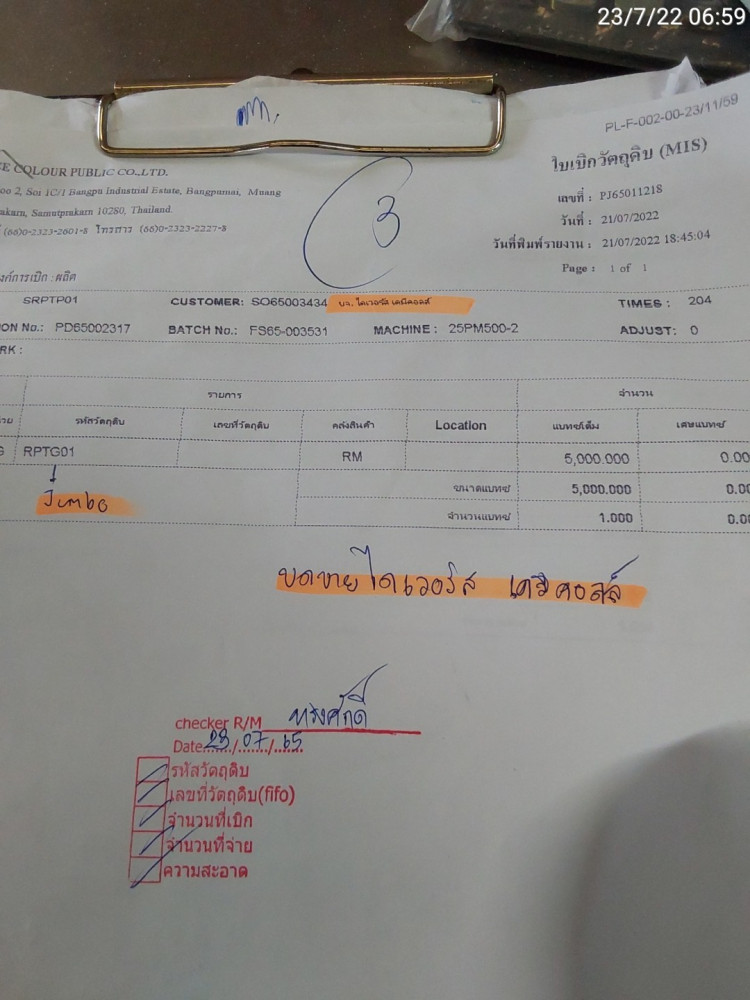 23/7/22 06:59
PL-F-002-00-23/11/59
ใบเบิกวัตถุดิบ (MIS)
COLOUR PUBLIC CO.,LTD.
oo 2, Soi 1C/1 Bangpu Industrial Estate, Bangpumai, Muang
akarn, Samutprakarn 10280, Thailand.
(66)0-2323-2601-8 โทรสาร (66)0-2323-2227-8
3
เลขที่ : PJ65011218
วันที่ : 21/07/2022
วันที่พิมพ์รายงาน : 21/07/2022 18:45:04
Page : 1 of 1
งค์การเบิก : ผลิต
SRPTP01 CUSTOMER: SO65003434 บจ. ไดเวอร์ส เคมีคอลส์ TIMES: 204
ON No.: PD65002317 BATCH No.: FS65-003531 MACHINE: 25PM500-2 ADJUST: 0
RK :
รายการ จำนวน
รหัสวัตถุดิบ เลขที่วัตถุดิบ คลังสินค้า Location แบทซ์เต็ม เศษแบทซ์
G RPTG01 RM 5,000.000 0.00
ขนาดแบทซ์ 5,000.000 0.00
จำนวนแบทซ์ 1.000 0.00
Jumbo
บดขายไดเวอร์ส เคมีคอลส์
checker R/M ทรงศักดิ์
Date 23/07/65
รหัสวัตถุดิบ
เลขที่วัตถุดิบ(fifo)
จำนวนที่เบิก
จำนวนที่จ่าย
ความสะอาด